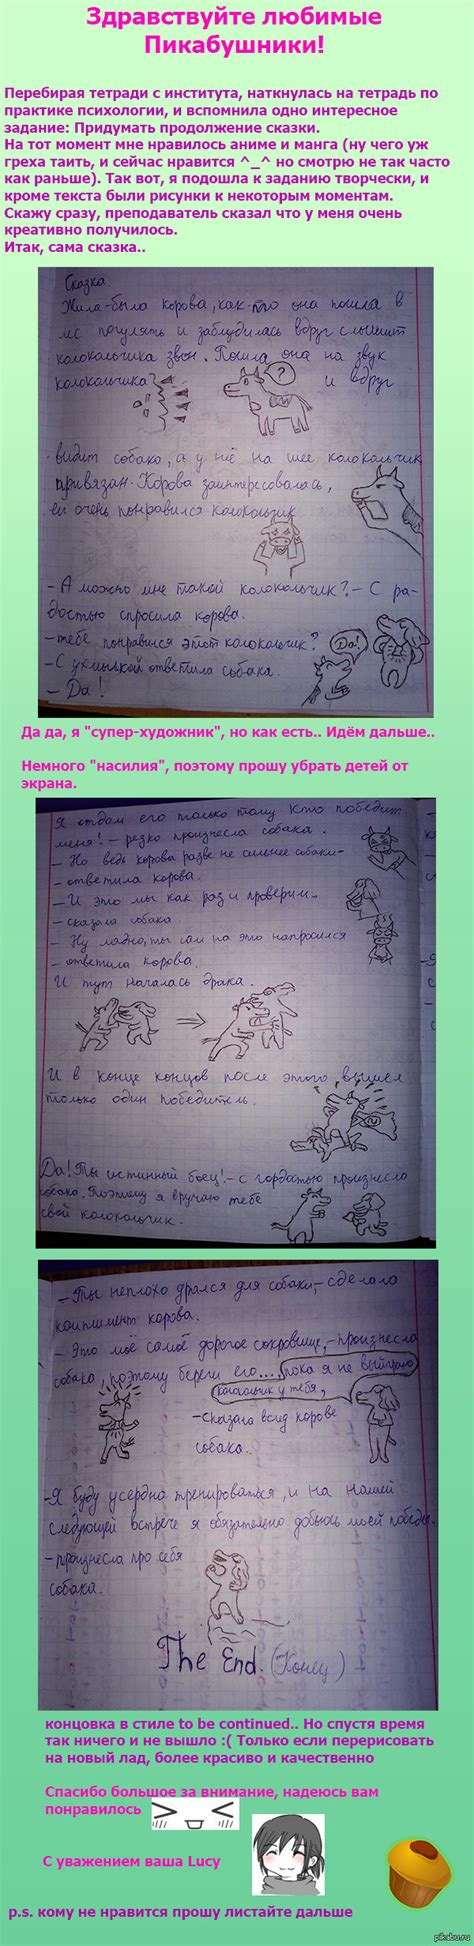 Здравствуйте любимые
Пикабушники!
Перебирая тетради с института, наткнулась на тетрадь по
практике психологии, и вспомнила одно интересное
задание: Придумать продолжение сказки.
На тот момент мне нравилось аниме и манга (ну чего уж
греха таить, и сейчас нравится ^_^ но смотрю не так часто
как раньше). Так вот, я подошла к заданию творчески, и
кроме текста были рисунки к некоторым моментам.
Скажу сразу, преподаватель сказал что у меня очень
креативно получилось.
Итак, сама сказка..
Сказка.
Жила-была корова, как-то она пошла в
лес погулять и заблудилась вдруг слышит
колокольчика звон. Пошла она на звук
колокольчика и вдруг
?
видит собако, а у неё на шее колокольчик
привязан. Корова заинтересовалась,
ей очень понравился колокольчик
- А можно мне такой колокольчик? - С ра-
достью спросила корова.
- тебе понравился этот колокольчик?
- С ухмылкой ответила собака.
- Да!
Да!
Да да, я "супер-художник", но как есть.. Идём дальше..
Немного "насилия", поэтому прошу убрать детей от
экрана.
Я отдам его только тому кто победит
меня! - резко произнесла собака.
- Но ведь корова разве не сильнее собаки -
- ответила корова.
- И это мы как раз и проверим..
- сказала собака
- Ну ладно, ты сам на это напросился
- ответила корова.
И тут началась драка.
И в конце концов после этого, вышел
только один победитель.
Да! Ты истинный боец! - с гордостью произнесла
собака. Поэтому я вручаю тебе
свой колокольчик.
- Ты неплохо дрался для собаки, - сделала
комплимент корова.
- Это моё самое дорогое сокровище, - произнесла
собака, поэтому береги его.... пока я не выиграю
колокольчик у тебя,
- сказала вслед корове
собака..
- Я буду усердно тренироваться, и на нашей
следующей встрече я обязательно добьюсь моей победы.
- произнесла про себя
собака.
The End. (Конец)
концовка в стиле to be continued.. Но спустя время
так ничего и не вышло :( Только если перерисовать
на новый лад, более красиво и качественно
Спасибо большое за внимание, надеюсь вам
понравилось
С уважением ваша Lucy
p.s. кому не нравится прошу листайте дальше
pikabu.ru